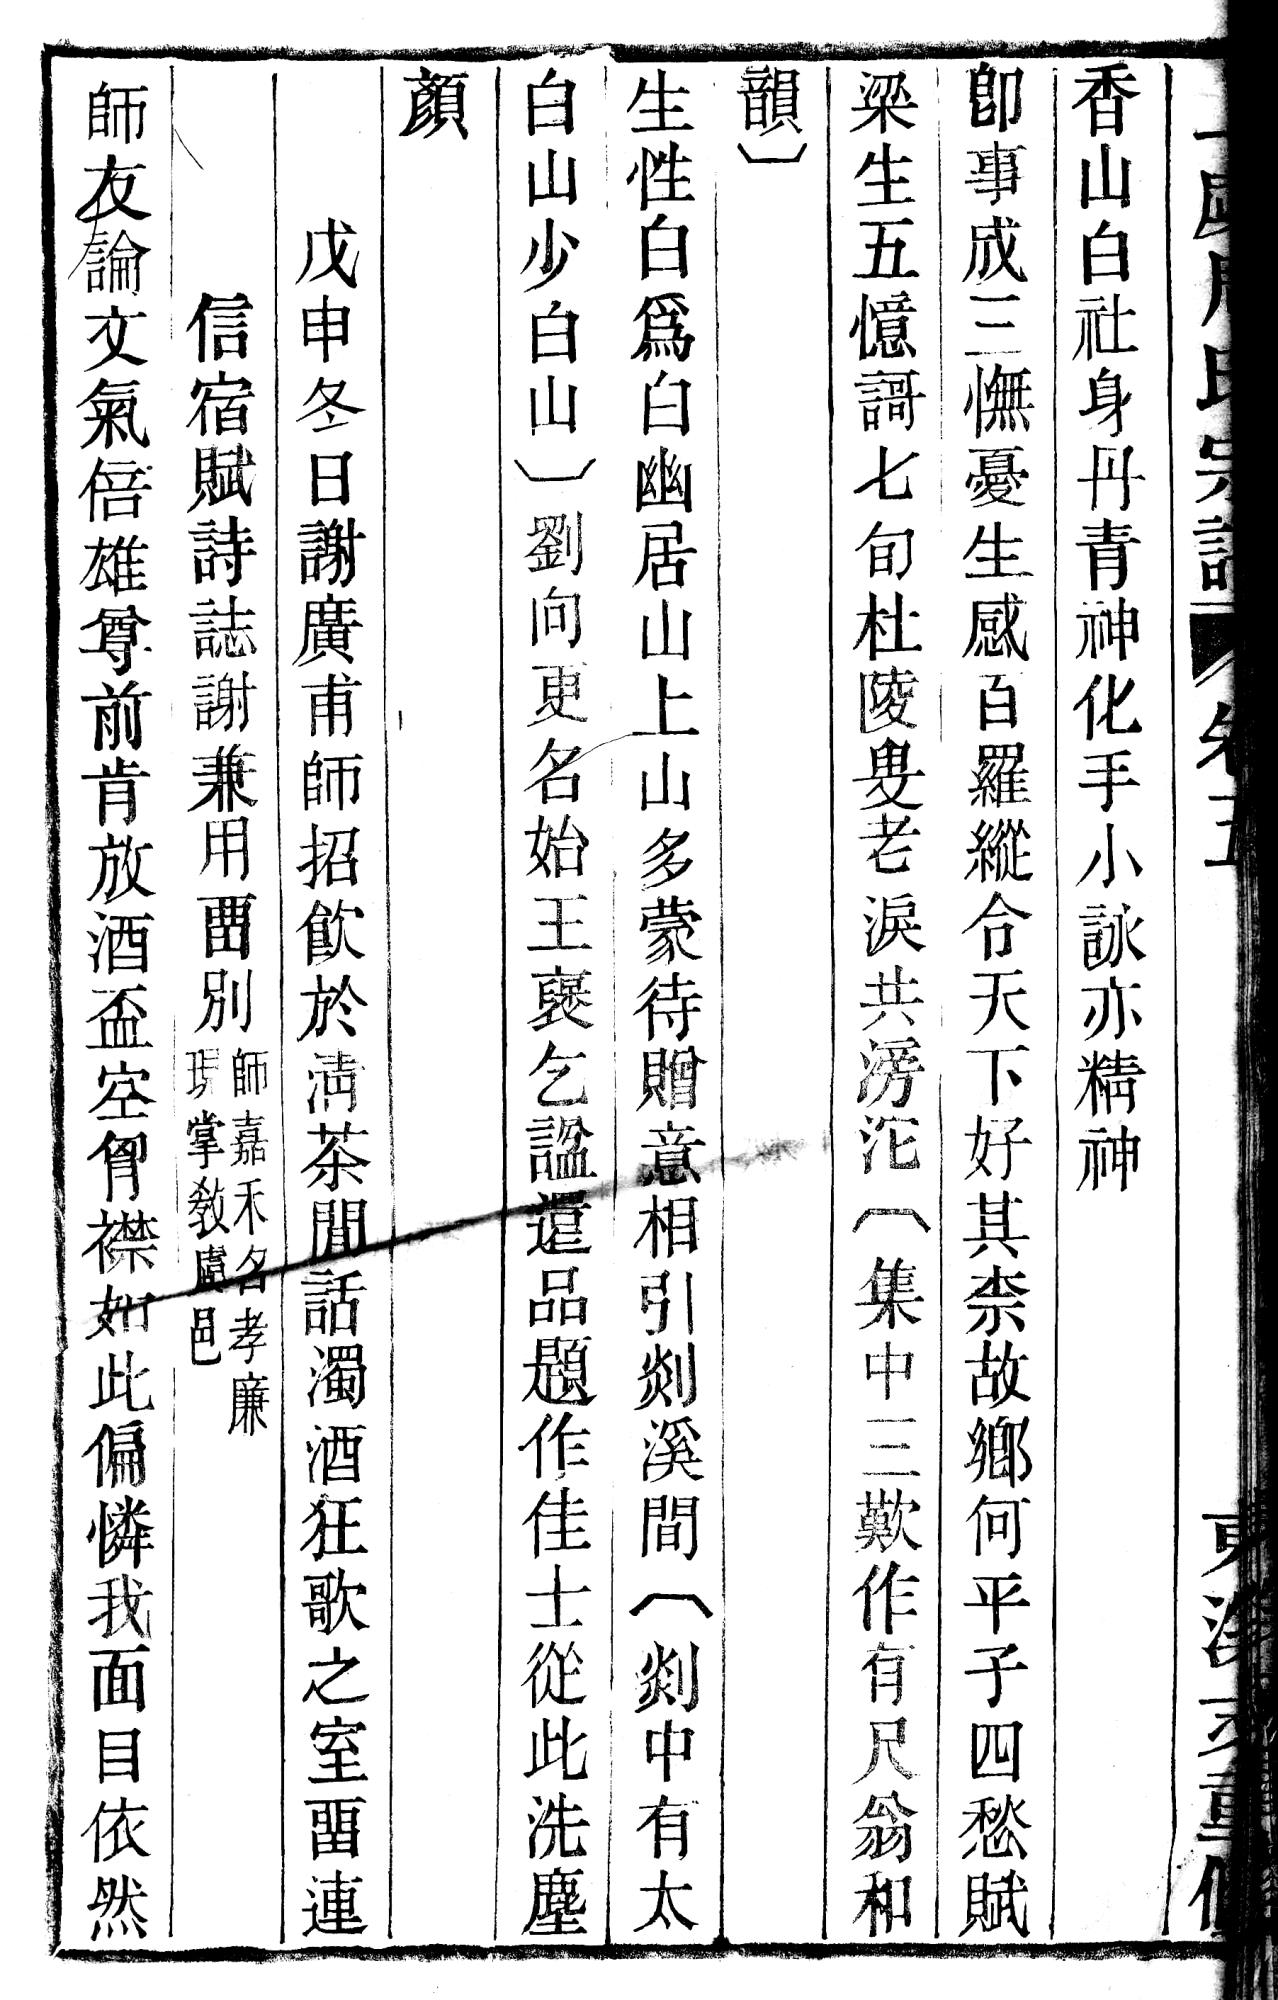 香山白社身丹青神化手小詠亦精神
卽事成三憮憂生感百羅縱令天下好其柰故鄉何平子四愁賦
梁生五憶謌七旬杜陵叟老淚共滂沱〔集中三歎作有尺翁和
韻〕
生性白爲白幽居山上山多蒙待贈意相引剡溪間〔剡中有太
白山少白山〕劉向更名始王襃乞諡還品題作佳士從此洗塵
顏
戊申冬日謝廣甫師招飮於淸茶閒話濁酒狂歌之室畱連
信宿賦詩誌謝兼用畱別師嘉禾名孝廉現掌敎虞邑
師友論文氣倍雄尊前肯放酒盃空胷襟如此偏憐我面目依然
氏宗譜 卷五